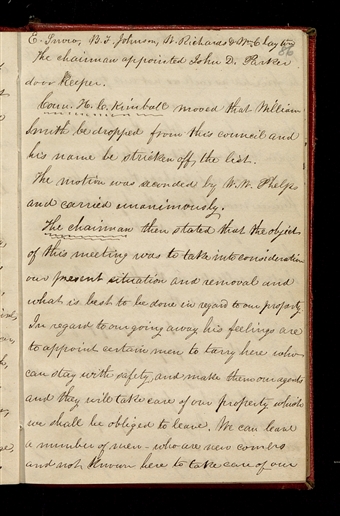 E. Snow, B. F. Johnson, W. Richards & Wm Clayton
86
The chairman appointed John D. Parker
door keeper.
Coun. H. C. Kimball moved that William
Smith be dropped from this council and
his name be stricken off, the list.
The motion was seconded by W. W. Phelps
and carried unanimously.
The chairman then stated that the object
of this meeting was to take into consideration
our present situation and removal and
what is best to be done in regard to our property
In regard to our going away his feelings are
to appoint certain men to tarry here who
can stay with safety, and make them our agents
and they will take care of our property which
we shall be obliged to leave. We can leave
a number of men - who are new comers
and not known here to take care of our